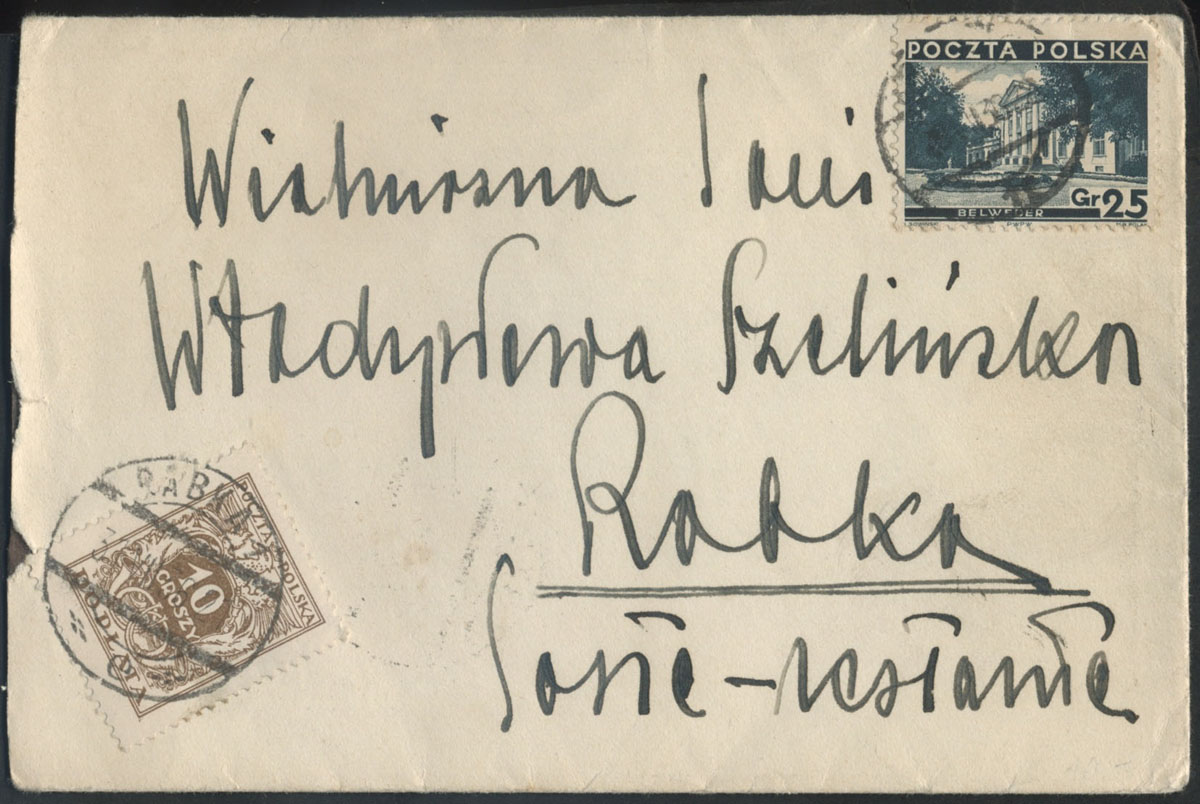 POCZTA POLSKA
BELWEDER
Gr 25
Wielmożna Pani
Władysława Szelińska
Rabka
Poste-restante
POCZTA POLSKA
10
GROSZY
DOPŁATA
RABKA